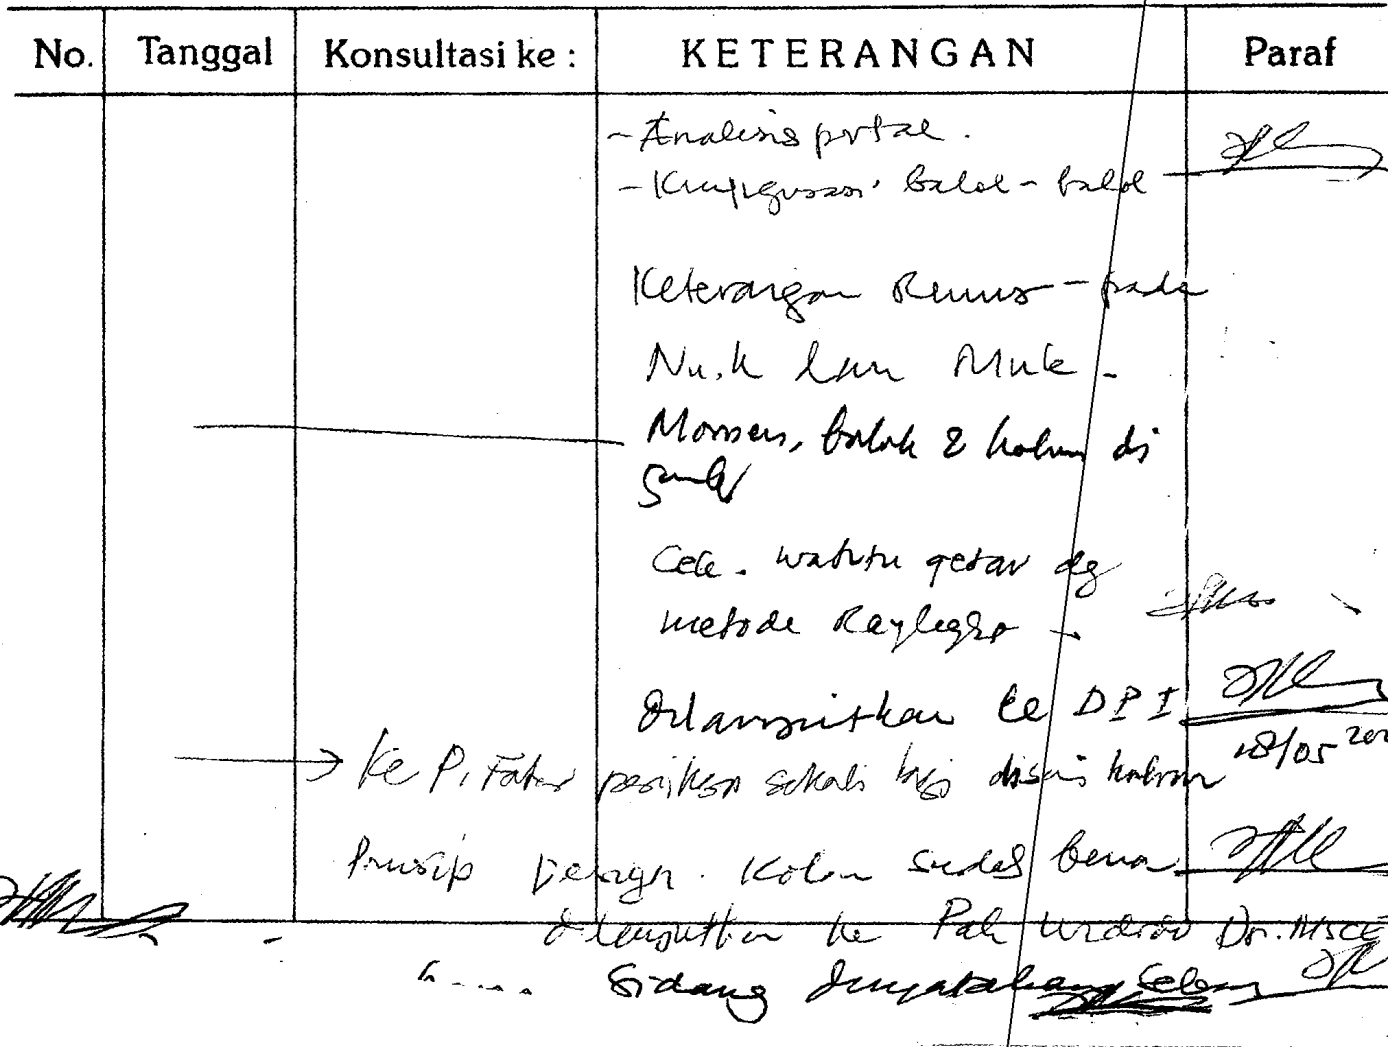 No. Tanggal Konsultasi ke : KETERANGAN Paraf
- Analisis portal.
- balok - balok
Keterangan Rumus - pada
Nu.k dan Muk -
Momen, balok & kolom di
Cek. waktu getar dg
metode Raylegh -
dilanjutkan ke DPI
18/05
Ke P. periksa sekali lagi disain kolom
Prinsip Design. Kolom sudah benar
dilanjutkan ke Pak Dr. MSCE
Sidang dinyatakan